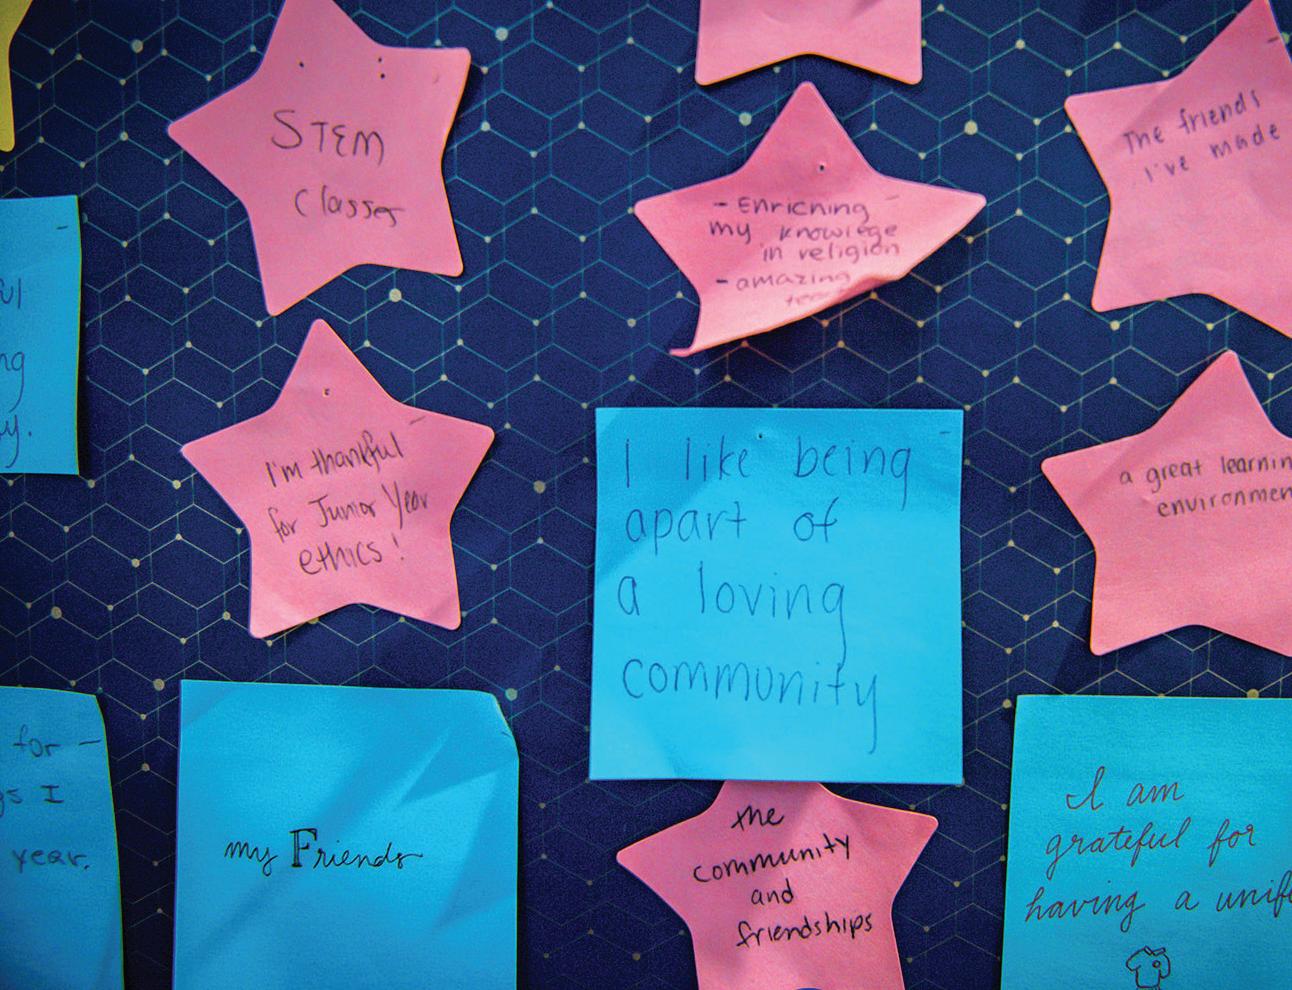 STEM
Classes
- Enriching
my knowlege
in religion
- amazing
The friends
I've made
I'm thankful
for Junior Year
ethics!
I like being
apart of
a loving
community
a great learnin
environmen
for
I
year.
my Friends
the
community
and
friendships
I am
grateful for
having a unif